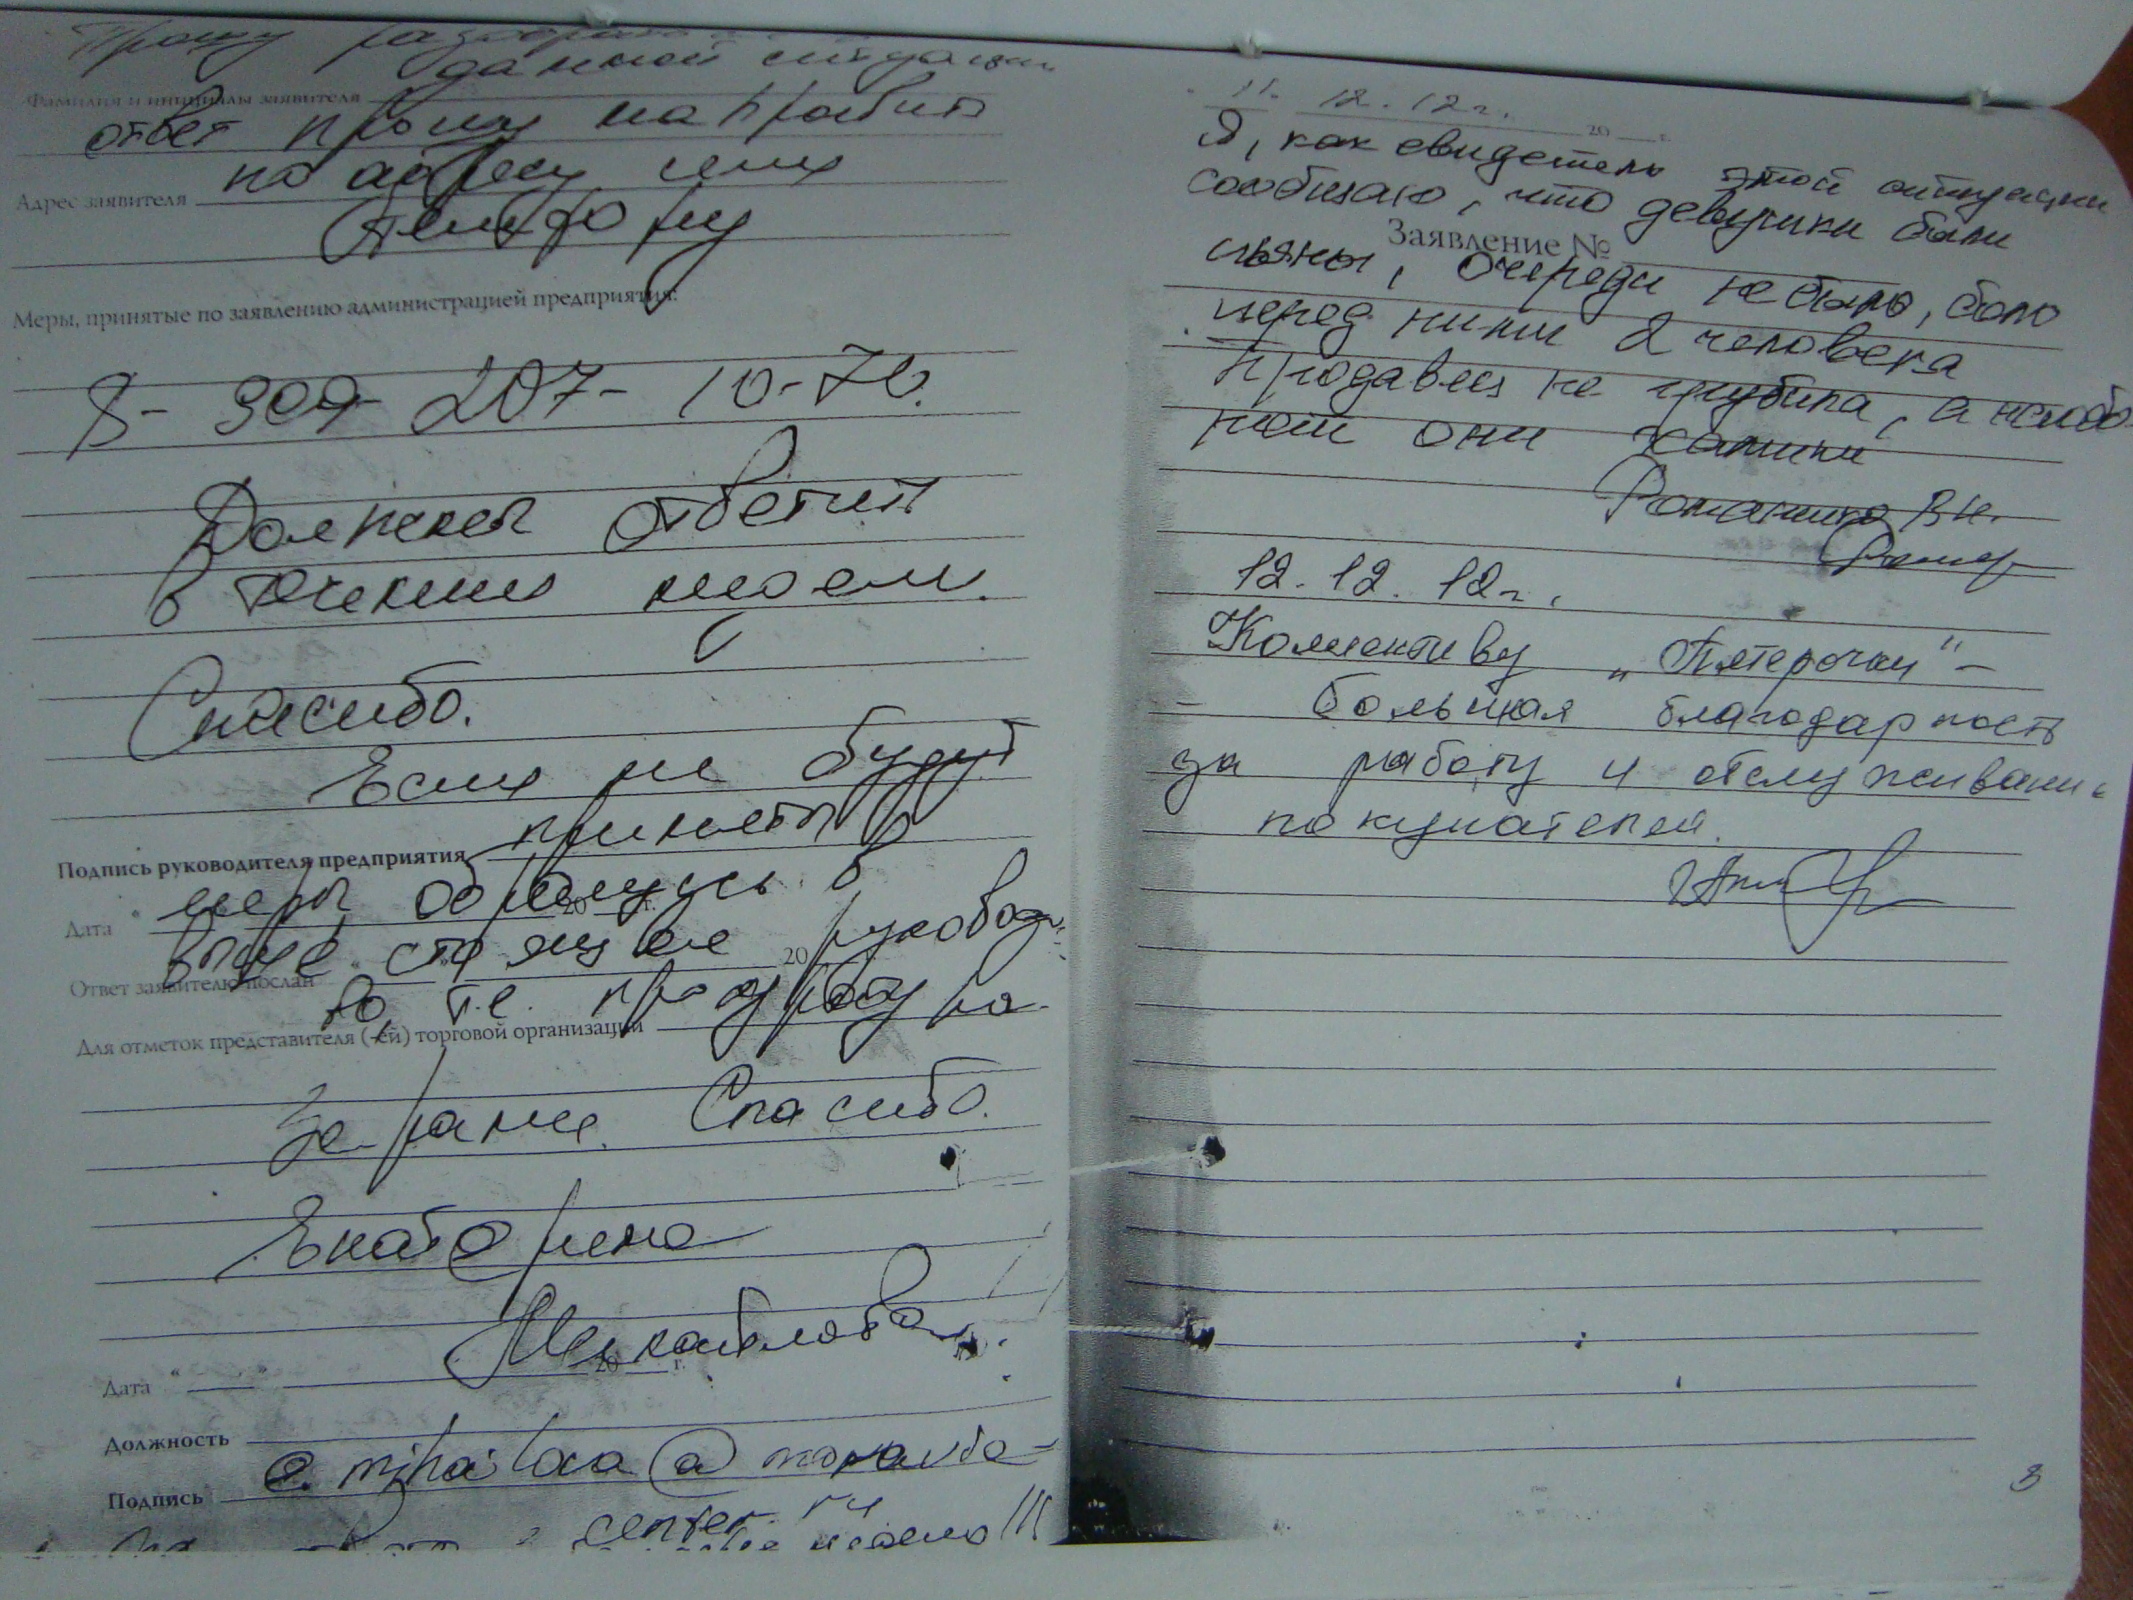 Прошу разобраться
данной ситуации
Фамилия и инициалы заявителя
ответ прошу направить
на адресу или
Адрес заявителя
телефону
Меры, принятые по заявлению администрацией предприятия:
8-909-207-10-76.
Должны ответить
в течении недели.
Спасибо.
Если не будут
приняты
Подпись руководителя предприятия
меры обращусь в
Дата " 20 г.
выше стоящее руководс
20
Ответ заявителю послан
во, т.е. прокуратура.
Для отметок представителя (-ей) торговой организации
Заранее Спасибо.
Екатерина
Михайлова
Дата " " 20 г.
Должность
e.mihailova@
Подпись
center.ru
неделю!!!
11. 12.12г.
20 г.
Я, как свидетель этой ситуации
сообщаю, что девушки были
Заявление №
пьяны, очереди не было, было
перед ними 2 человека
Продавец не грубила, а наобо-
рот они хамили
Романика В.Н.
12.12.12г.
Коллективу „Пятерочки" –
– большая благодарность
за работу и обслуживание
покупателей.
8